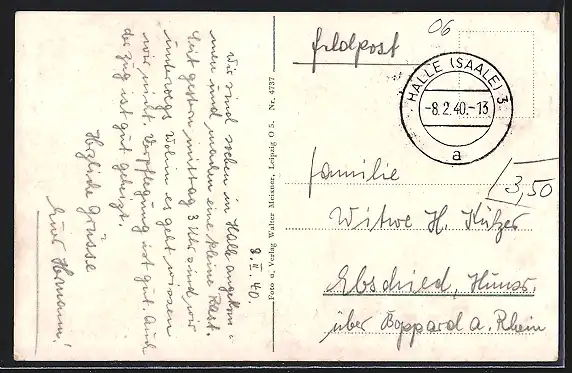 8. II. 40.
Wir sind soeben in Halle angekom-
men und machen eine kleine Rast.
Seit gestern mittag 3 Uhr sind wir
unterwegs. Wohin es geht wissen
wir nicht. Verpflegung ist gut. Auch
der Zug ist gut geheizt.
Herzliche Grüsse
Euer Hermann!
Foto u. Verlag Walter Meixner, Leipzig O 5. Nr. 4737
06
Feldpost
HALLE (SAALE) 3
-8.2.40.-13
a
3,50
Familie
Witwe H. Kützer
Ebschied, Hunsr.
über Boppard a. Rhein